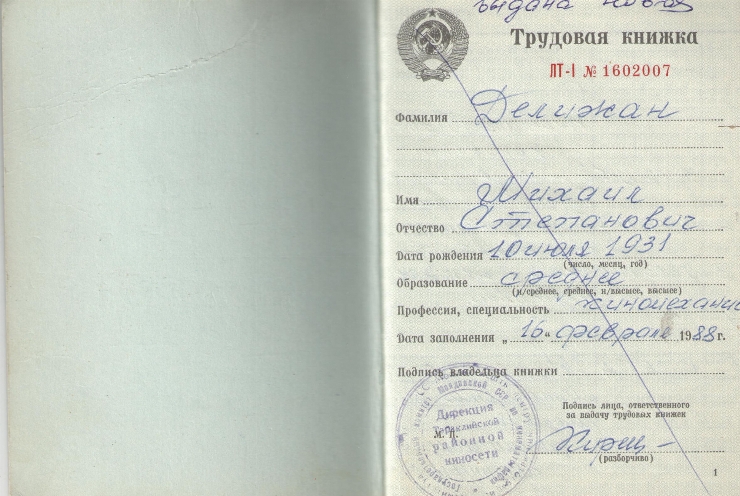 выдана новая
Трудовая книжка
ЛТ-I № 1602007
Фамилия Делижан
Имя Михаил
Отчество Степанович
Дата рождения 10 июля 1931
(число, месяц, год)
Образование среднее
(н/среднее, среднее, н/высшее, высшее)
Профессия, специальность киномеханик
Дата заполнения „16“ февраля 1988 г.
Подпись владельца книжки
Подпись лица, ответственного
за выдачу трудовых книжек
М. П.
(разборчиво)
Дирекция
Тараклийской
районной
киносети
1